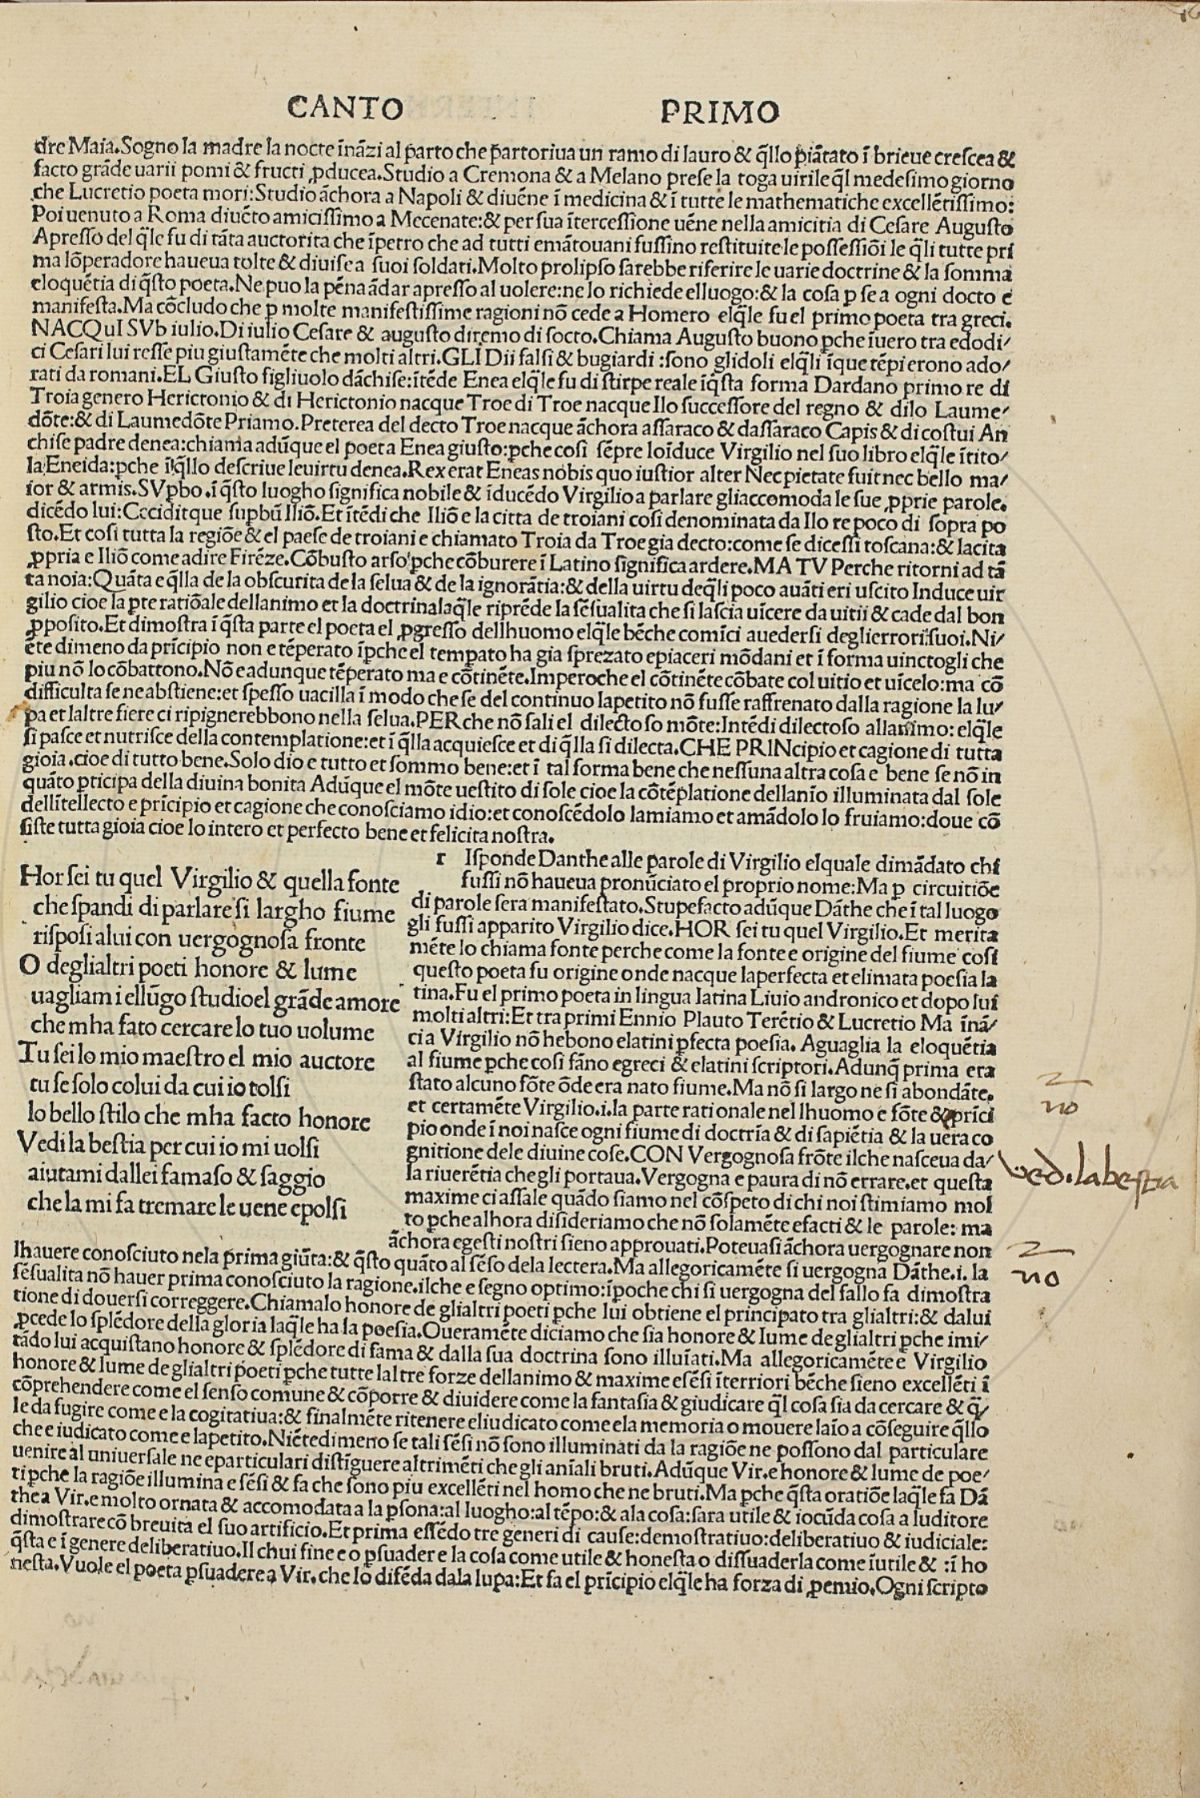 CANTO PRIMO
dre Maia.Sogno la madre la nocte īnāzi al parto che ꝑartoriua un ramo di lauro & q̄llo piātato ī brieue crescea &
facto grāde uarii pomi & fructi ꝓducea.Studio a Cremona & a Melano prese la toga uirile q̄l medesimo giorno
che Lucretio poeta mori:Studio āchora a Napoli & diuēne ī medicina & ī tutte le mathematiche excellētissimo:
Poi uenuto a Roma diuēto amicissimo a Mecenate:& per sua ītercessione uēne nella amicitia di Cesare Augusto
Apresso del q̄le fu di tāta auctorita che īpetro che ad tutti emātouani fussino restituite le possessiōi le q̄li tutte pri
ma lōperadore haueua tolte & diuise a suoi soldati.Molto prolipso sarebbe riferire le uarie doctrine & la somma
eloquētia di q̄sto poeta.Ne puo la pēna ādar apresso al uolere:ne lo richiede elluogo:& la cosa ꝑ se a ogni docto e
manifesta.Ma cōcludo che ꝑ molte manifestissime ragioni nō cede a Homero elq̄le fu el primo poeta tra greci.
NACQuI SVb iulio.Di iulio Cesare & augusto diremo di socto.Chiama Augusto buono ꝑche īuero tra edodi/
ci Cesari lui resse piu giustamēte che molti altri.GLI Dii falsi & bugiardi :sono glidoli elq̄li īque tēpi erono ado/
rati da romani.EL Giusto figliuolo dāchise:ītēde Enea elq̄le fu di stirpe reale īq̄sta forma Dardano primo re di
Troia genero Herictonio & di Herictonio nacque Troe di Troe nacque Ilo successore del regno & dilo Laume/
dōte:& di Laumedōte Priamo.Preterea del decto Troe nacque āchora assaraco & dassaraco Capis & di costui An
chise padre denea:chiama adūque el poeta Enea giusto:ꝑche cosi sēpre loīduce Virgilio nel suo libro elq̄le ītito/
la Eneida:ꝑche īq̄llo descriue leuirtu denea.Rex erat Eneas nobis quo iustior alter Nec pietate fuit nec bello ma/
ior & armis.SVꝑbo.ī q̄sto luogho significa nobile & īducēdo Virgilio a parlare gliaccomoda le sue ꝓprie parole.
dicēdo lui:Ceciditque suꝑbū Iliō.Et ītēdi che Iliō e la citta de troiani cosi denominata da Ilo re poco di sopra po
sto.Et cosi tutta la regiōe & el paese de troiani e chiamato Troia da Troe gia decto:come se dicessi toscana:& lacita
ꝓpria e Iliō come adire Firēze.Cōbusto arso ꝑche cōburere ī Latino significa ardere.MA TV Perche ritorni ad tā
ta noia:Quāta e q̄lla de la obscurita de la selua & de la ignorātia:& della uirtu deq̄li poco auāti eri uscito Induce uir
gilio cioe la ꝑte ratiōale dellanimo et la doctrina laq̄le riprēde la sēsualita che si lascia uīcere da uitii & cade dal bon
ꝓposito.Et dimostra ī q̄sta parte el poeta el ꝓgresso dellhuomo elq̄le bēche comīci auedersi deglierrori suoi.Ni/
ēte dimeno da prīcipio non e tēperato īꝑche el tempato ha gia sprezato epiaceri mōdani et ī forma uinctogli che
piu nō lo cōbattono.Nō e adunque tēperato ma e cōtinēte.Imperoche el cōtinēte cōbate col uitio et uīcelo:ma cō
difficulta se ne abstiene:et spesso uacilla ī modo che se del continuo lapetito nō fusse raffrenato dalla ragione la lu/
pa et laltre fiere ci ripignerebbono nella selua.PER che nō sali el dilectoso mōte:Intēdi dilectoso allanīmo: elq̄le
si pasce et nutrisce della contemplatione:et ī q̄lla acquiesce et di q̄lla si dilecta.CHE PRINcipio et cagione di tutta
gioia.cioe di tutto bene.Solo dio e tutto et sommo bene:et ī tal forma bene che nessuna altra cosa e bene se nō in
quāto ꝑticipa della diuina bonita Adūque el mōte uestito di sole cioe la cōtēplatione dellanīo illuminata dal sole
dellītellecto e prīcipio et cagione che conosciamo idio:et conoscēdolo lamiamo et amādolo lo fruiamo:doue cō
siste tutta gioia cioe lo intero et perfecto bene et felicita nostra.
Hor sei tu quel Virgilio & quella fonte
che spandi di parlare si largho fiume
risposi alui con uergognosa fronte
O deglialtri poeti honore & lume
uagliami ellūgo studio el grāde amore
che mha fato cercare lo tuo uolume
Tu sei lo mio maestro el mio auctore
tu se solo colui da cui io tolsi
lo bello stilo che mha facto honore
Vedi la bestia per cui io mi uolsi
aiutami dallei famaso & saggio
che la mi fa tremare le uene e polsi
r Isponde Danthe alle parole di Virgilio elquale dimādato chi
fussi nō haueua pronūciato el proprio nome:Ma ꝑ circuitiōe
di parole sera manifestato.Stupefacto adūque Dāthe che ī tal luogo
gli fussi apparito Virgilio dice.HOR sei tu quel Virgilio.Et merita
mēte lo chiama fonte perche come la fonte e origine del fiume cosi
questo poeta fu origine onde nacque laperfecta et elimata poesia la
tina.Fu el primo poeta in lingua latina Liuio andronico et dopo lui
molti altri:Et tra primi Ennio Plauto Terētio & Lucretio Ma īnā/
ci a Virgilio nō hebono elatini ꝑfecta poesia. Aguaglia la eloquētia
al fiume ꝑche cosi fāno egreci & elatini scriptori.Adunq̄ prima era
stato alcuno fōte ōde era nato fiume.Ma nō si largo ne si abondāte.
et certamēte Virgilio.i.la parte rationale nel lhuomo e fōte & prīci
pio onde ī noi nasce ogni fiume di doctrīa & di sapiētia & la uera co
gnitione dele diuine cose.CON Vergognosa frōte ilche nasceua da/
la riuerētia che gli portaua.Vergogna e paura di nō errare.et questa
maxime ci assale quādo siamo nel cōspeto di chi noi stimiamo mol
to ꝑche alhora disideriamo che nō solamēte efacti & le parole: ma
āchora egesti nostri sieno approuati.Poteuasi āchora uergognare non
lhauere conosciuto nela prima giūta:& q̄sto quāto al sēso dela lectera.Ma allegoricamēte si uergognā Dāthe.i. la
sēsualita nō hauer prima conosciuto la ragione.ilche e segno optimo:īpoche chi si uergogna del fallo fa dimostra
tione di douersi correggere.Chiamalo honore de glialtri poeti ꝑche lui obtiene el principato tra glialtri:& dalui
ꝓcede lo splēdore della gloria laq̄le ha la poesia.Oueramēte diciamo che sia honore & lume de glialtri ꝑche imi/
tādo lui acquistano honore & splēdore di fama & dalla sua doctrina sono illuīati.Ma allegoricamēte ē Virgilio
honore & lume de glialtri poeti ꝑche tutte laltre forze dellanimo & maxime esēsi īterriori bēche sieno excellēti ī
cōprehendere come el senso comune & cōporre & diuidere come la fantasia & giudicare q̄l cosa sia da cercare & q̄/
le da fugire come e la cogitatiua:& finalmēte ritenere eliudicato come ela memoria o mouere laīo a cōseguire q̄llo
che e iudicato come e lapetito.Niētedimeno se tali sēsi nō sono illuminati da la ragiōe ne possono dal particulare
uenire al uniuersale ne eparticulari distīguere altrimēti che gli anīali bruti.Adūque Vir.e honore & lume de poe/
ti ꝑche la ragiōe illumina e sēsi & fa che sono piu excellēti nel homo che ne bruti.Ma ꝑche q̄sta oratiōe laq̄le fa Dā
the a Vir.e molto ornata & accomodata a la ꝑsona:al luogho:al tēpo:& ala cosa:sara utile & iocūda cosa a luditore
dimostrare cō breuita el suo artificio.Et prima essēdo tre generi di cause:demostratiuo:deliberatiuo & iudiciale:
q̄sta e ī genere deliberatiuo.Il chui fine e o ꝑsuader e la cosa come utile & honesta o dissuaderla come īutile & :ī ho
nesta.Vuole el poeta ꝑsuadere a Vir.che lō difēda dala lupa:Et fa el prīcipio elq̄le ha forza di ꝓemio.Ogni scripto
no
ved.la bestia
no